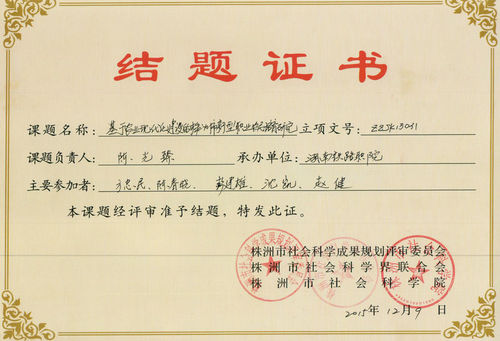 结题证书
课题名称: 基于农业现代化建设的株洲市新型职业农民培育研究 立项文号: ZZSK15031
课题负责人: 陈 承办单位: 湖南铁路职院
主要参加者: 方忠良、陈春晓、彭建雄、沈凯、赵健
本课题经评审准予结题，特发此证。
株洲市社会科学成果规划评审委员会
株洲市社会科学界联合会
株洲市社会科学院
2015年12月9日